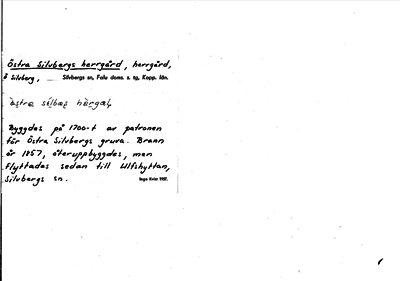 Östra Silvbergs herrgård, herrgård,
Ö Silvberg, Silvbergs sn, Falu doms. s. tg, Kopp. län.
Byggdes på 1700-t av patronen
för Östra Silvbergs gruva. Brann
år 1857, återuppbyggdes, men
flyttades sedan till Ulfshyttan,
Silvbergs sn.
Inga Kvist 1987.